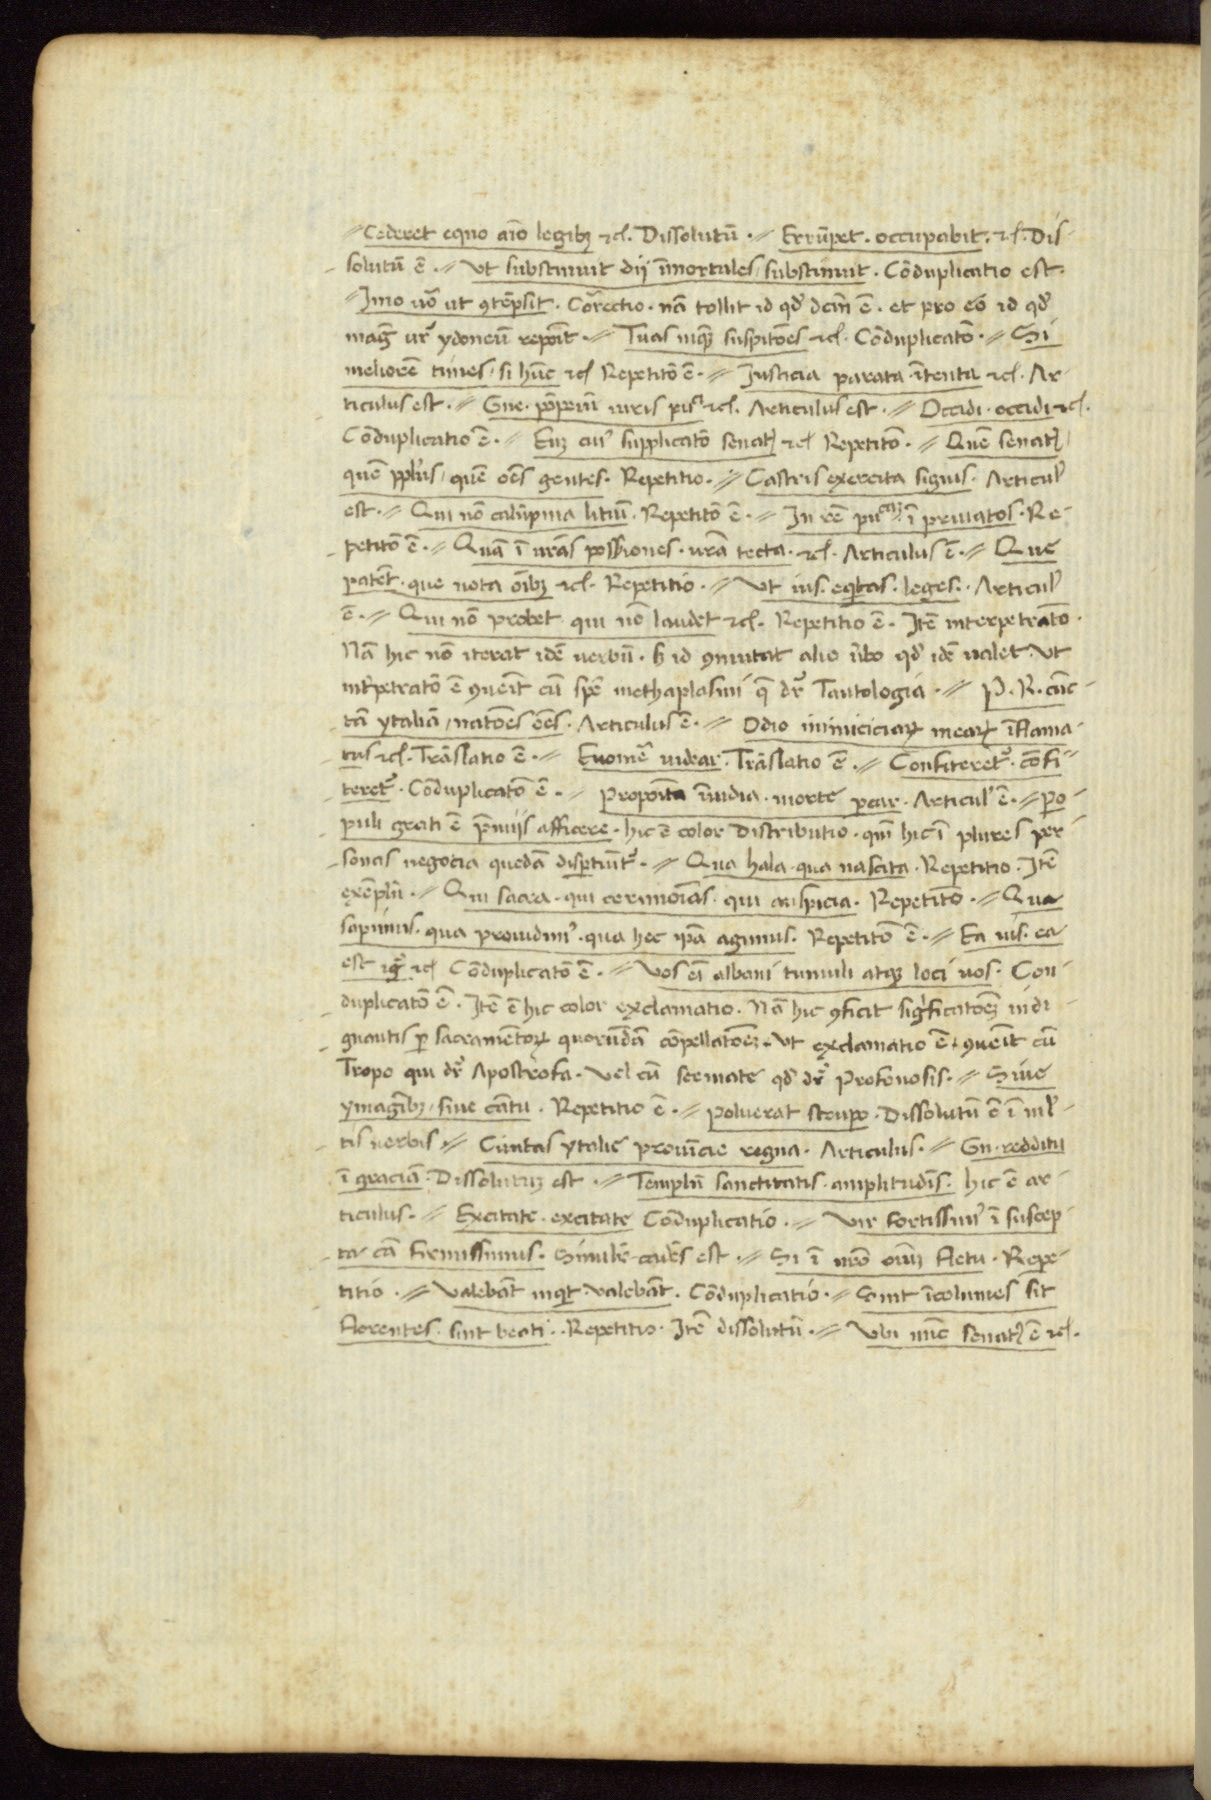 Cederet equo aīo legibꝫ ⁊cͣ. Dissolutū. // Errūpet. occupabit. ⁊cͣ. Dis-
solutū ē. // Ut substinuit dij īmortales / substinuit. Cōduplicatio est.
// Imo uͦ ut ꝯtēpsit. Correctio. nā tollit id qđ dcm̄ ē. et pro eo id qđ
maḡ ur̄ ydoneū repoīt. // Tuas inqꝫ suspitōes ⁊cͣ. Cōduplicatō. // Si
meliorē times, si hūc ⁊cͣ Repetitō ē. // Iusticia parata. ītenta ⁊cͣ. Ar-
ticulus est. // Gne. iuris ⁊cͣ. Articulus est. // Occidi. occidi ⁊cͣ.
Cōduplicatio ē. // cuiꝰ supplicatō senatꝰ ⁊cͣ Repetitō. // Quē senatꝰ /
quē pplus / quē oēs gentes. Repetitio. // Castris exercita signis. Articulꝰ
est. // Qui nō calūpnia litiū. Repetitō ē. // In rē ī priuatos. Re-
petitō ē. // Quā ī uras possiones. urā tecta. ⁊cͣ. Articulus ē. // Que
patēt. que nota oībꝫ ⁊cͣ. Repetitio. // Ut ius. eqͥtas. leges. Articulꝰ
ē. // Qui nō probet qui nō laudet ⁊cͣ. Repetitio ē. Itē interpetratō.
Nā hic nō iterat idē uerbū. s̄ id ꝯmutat alio ūbo qđ idē ualet. Ut
intp̄etratō ē ꝯueīt cū spē methaplasmi q̄ dr̄ Tautologia. // P. R. cūc-
tā ytaliā, natōes oēs. Articulus ē. // Odio inimiciciaꝝ meaꝝ īflama-
tus ⁊cͣ. Trāslatio ē. // Euomē uidear. Trāslatio ē. // Confiteret͛. cōfi-
teret͛. Cōduplicatō ē. // Propoīta īuidia. morte Articulꝰ ē. // Po-
puli grati ē p̄mijs afficere. hic ē color Distributio. qm̄ hic ī plures per-
sonas negocia quedā disptiūt͛. // Qua hala. qua nascita. Repetitio. Itē
exēplū. // Qui sacra. qui cerimoīas. qui auspicia. Repetitō. // Qua
sapimus. qua prouidimꝰ. qua hec ipā agimus. Repetitō ē. // Ea uis. ea
est igͥ ⁊cͣ Cōduplicatō ē. // Vos eī albani tumuli atqꝫ loci uos. Con-
duplicatō ē. Itē ē hic color exclamatio. Nā hic ꝯficit significatōeꝫ indi-
gnantis ꝑ sacramentoꝝ quorūdā cōpellatōeꝫ. Ut exclamatio ē. ꝯueīt cū
Tropo qui dr̄ Apostrofa. Vel cū scemate qđ dr̄ Profonosis. // Siue
ymagībꝫ, siue cātu. Repetitio ē. // Poluerat stupro. Dissolutū ē ī ml̄-
tis uerbis. // Ciuitas ytalie prouīcie regna. Articulus. // Gn. redditu
ī graciā. Dissolutuꝫ est. // Templū sanctitatis. amplitudīs. Hic ē ar-
ticulus. // Excitate. excitate Cōduplicatio. // Vir fortissimꝰ ī suscep-
ta cā firmissimus. Similē. cadēs est. // Si ī nrō oīuꝫ fletu. Repe-
titio. // Valebāt inqͥt. valebāt. Cōduplicatio. // Sint īcolumes sīt
florentes. sint beati. Repetitio. Itē dissolutū. // Vbi nūc senatꝰ ē ⁊cͣ.